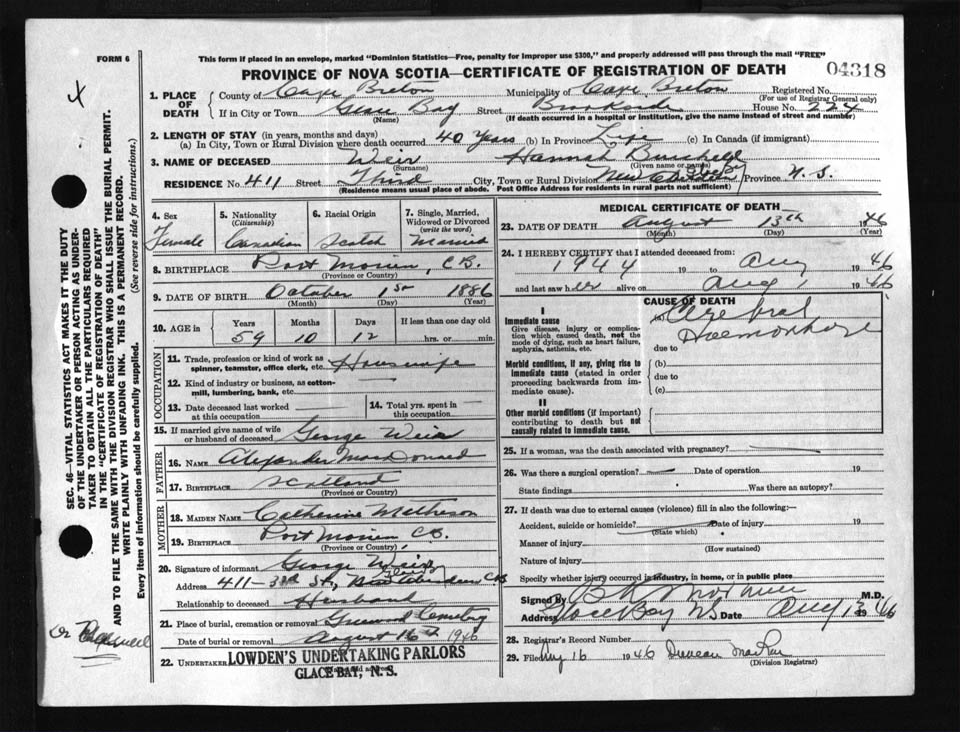 FORM 6
This form if placed in an envelope, marked "Dominion Statistics—Free, penalty for improper use $300," and properly addressed will pass through the mail "FREE"
PROVINCE OF NOVA SCOTIA—CERTIFICATE OF REGISTRATION OF DEATH 04318
X
1. PLACE OF DEATH
County of Cape Breton Municipality of Cape Breton Registered No.
(For use of Registrar General only)
If in City or Town Glace Bay Street Brookside House No. 224
(Name) (If death occurred in a hospital or institution, give the name instead of street and number)
2. LENGTH OF STAY (in years, months and days)
(a) In City, Town or Rural Division where death occurred 40 Years (b) In Province Life (c) In Canada (if immigrant)
3. NAME OF DECEASED Weir Hannah
(Surname) (Given name or names)
RESIDENCE No. 411 Street Third City, Town or Rural Division New Province N. S.
(Residence means usual place of abode. Post Office Address for residents in rural parts not sufficient)
4. Sex
Female
5. Nationality
(Citizenship)
Canadian
6. Racial Origin
Scotch
7. Single, Married, Widowed or Divorced
(write the word)
Married
8. BIRTHPLACE Port Morien, C.B.
(Province or Country)
9. DATE OF BIRTH October 1st 1886
(Month) (Day) (Year)
10. AGE in Years Months Days If less than one day old
59 10 12 hrs. or min.
OCCUPATION
11. Trade, profession or kind of work as spinner, teamster, office clerk, etc. Housewife
12. Kind of industry or business, as cotton-mill, lumbering, bank, etc. —
13. Date deceased last worked at this occupation — 14. Total yrs. spent in this occupation —
15. If married give name of wife or husband of deceased George Weir
FATHER
16. NAME Alexander MacDonald
17. BIRTHPLACE Scotland
(Province or Country)
MOTHER
18. MAIDEN NAME Catherine Matheson
19. BIRTHPLACE Port Morien C.B.
(Province or Country)
20. Signature of informant George Weir
Address 411-3rd St., New Aberdeen C.B
Relationship to deceased Husband
21. Place of burial, cremation or removal Greenwood Cemetery
Date of burial or removal August 16th 1946
22. UNDERTAKER LOWDEN'S UNDERTAKING PARLORS
GLACE BAY, N. S.
MEDICAL CERTIFICATE OF DEATH
23. DATE OF DEATH August 13th 1946
(Month) (Day) (Year)
24. I HEREBY CERTIFY that I attended deceased from:
1944 19 to Aug 1946
and last saw her alive on Aug 1, 1946
CAUSE OF DEATH
I
Immediate cause
Give disease, injury or complication which caused death, not the mode of dying, such as heart failure, asphyxia, asthenia, etc.
(a) Cerebral Haemorrhage
due to
Morbid conditions, if any, giving rise to immediate cause (stated in order proceeding backwards from immediate cause).
(b)
due to
(c)
II
Other morbid conditions (if important) contributing to death but not causally related to immediate cause.
25. If a woman, was the death associated with pregnancy?
26. Was there a surgical operation? — Date of operation 19
State findings Was there an autopsy?
27. If death was due to external causes (violence) fill in also the following:—
Accident, suicide or homicide? Date of injury 19
(State which)
Manner of injury
(How sustained)
Nature of injury
Specify whether injury occurred in industry, in home, or in public place
Signed by M.D.
Address Glace Bay NS Date Aug 13 1946
28. Registrar's Record Number
29. Filed Aug 16 1946 Duncan MacRae
(Division Registrar)
SEC. 46—VITAL STATISTICS ACT MAKES IT THE DUTY
OF THE UNDERTAKER OR PERSON ACTING AS UNDER-
TAKER TO OBTAIN ALL THE PARTICULARS REQUIRED
IN THE "CERTIFICATE OF REGISTRATION OF DEATH"
AND TO FILE THE SAME WITH THE DIVISION REGISTRAR WHO SHALL ISSUE THE BURIAL PERMIT.
WRITE PLAINLY WITH UNFADING INK. THIS IS A PERMANENT RECORD.
Every item of information should be carefully supplied. (See reverse side for instructions.)